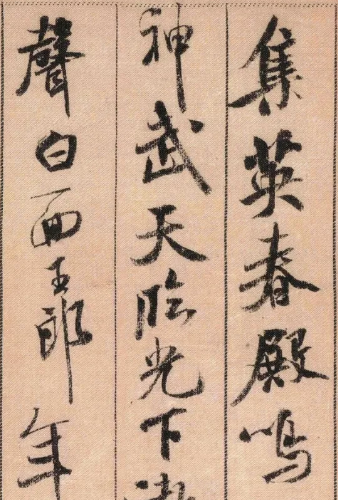 集英春殿鳴
神武天臨光下
聲白面王郎年